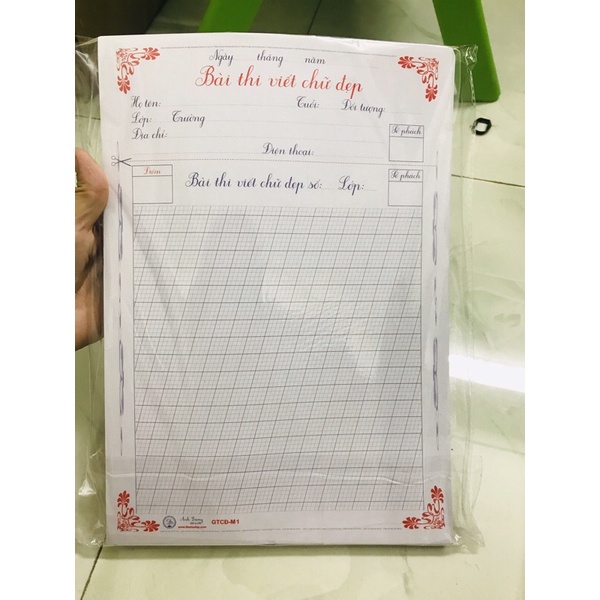 Ngày tháng năm
Bài thi viết chữ đẹp
Họ tên: Tuổi: Đối tượng:
Lớp: Trường
Địa chỉ: Số phách
Điện thoại:
Điểm Số phách
Bài thi viết chữ đẹp số: Lớp:
Ánh Dương
GTCĐ-M1